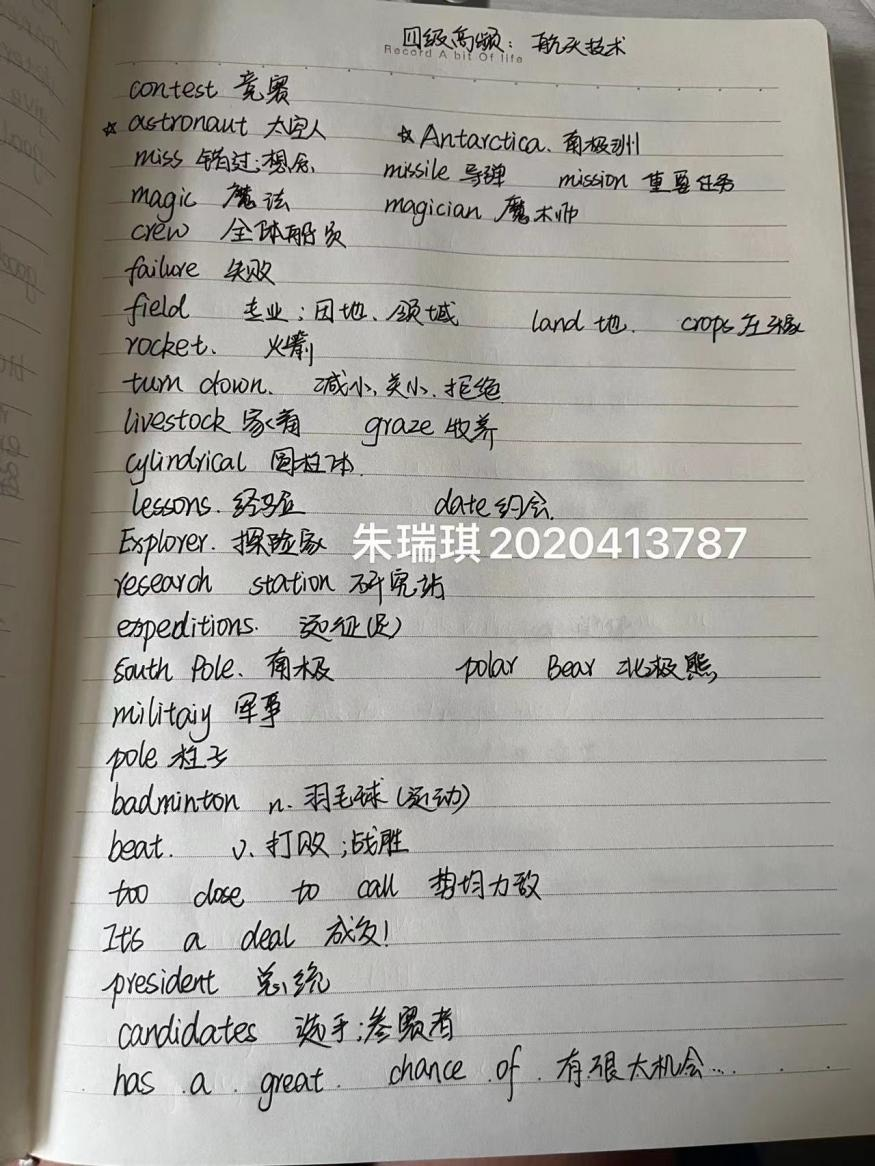 四级高频：航天技术
Record A bit Of life
contest 竞赛
☆ astronaut 太空人 ☆ Antarctica. 南极洲
miss 错过;想念 missile 导弹 mission 重要任务
magic 魔法 magician 魔术师
crew 全体船员
failure 失败
field 专业;田地、领域 land 地. crops 庄稼
rocket. 火箭
turn down. 减小,关小.拒绝
livestock 家畜 graze 牧养
cylindrical 圆柱体.
lessons. 经验 date 约会.
Explorer. 探险家 朱瑞琪2020413787
research station 研究站
expeditions. 远征(队)
South Pole. 南极 polar Bear 北极熊
militaiy 军事
pole 柱子
badminton n. 羽毛球(运动)
beat. v. 打败;战胜
too close to call 势均力敌
It's a deal 成交!
president 总统
candidates 选手;参赛者
has a great chance of 有很大机会...